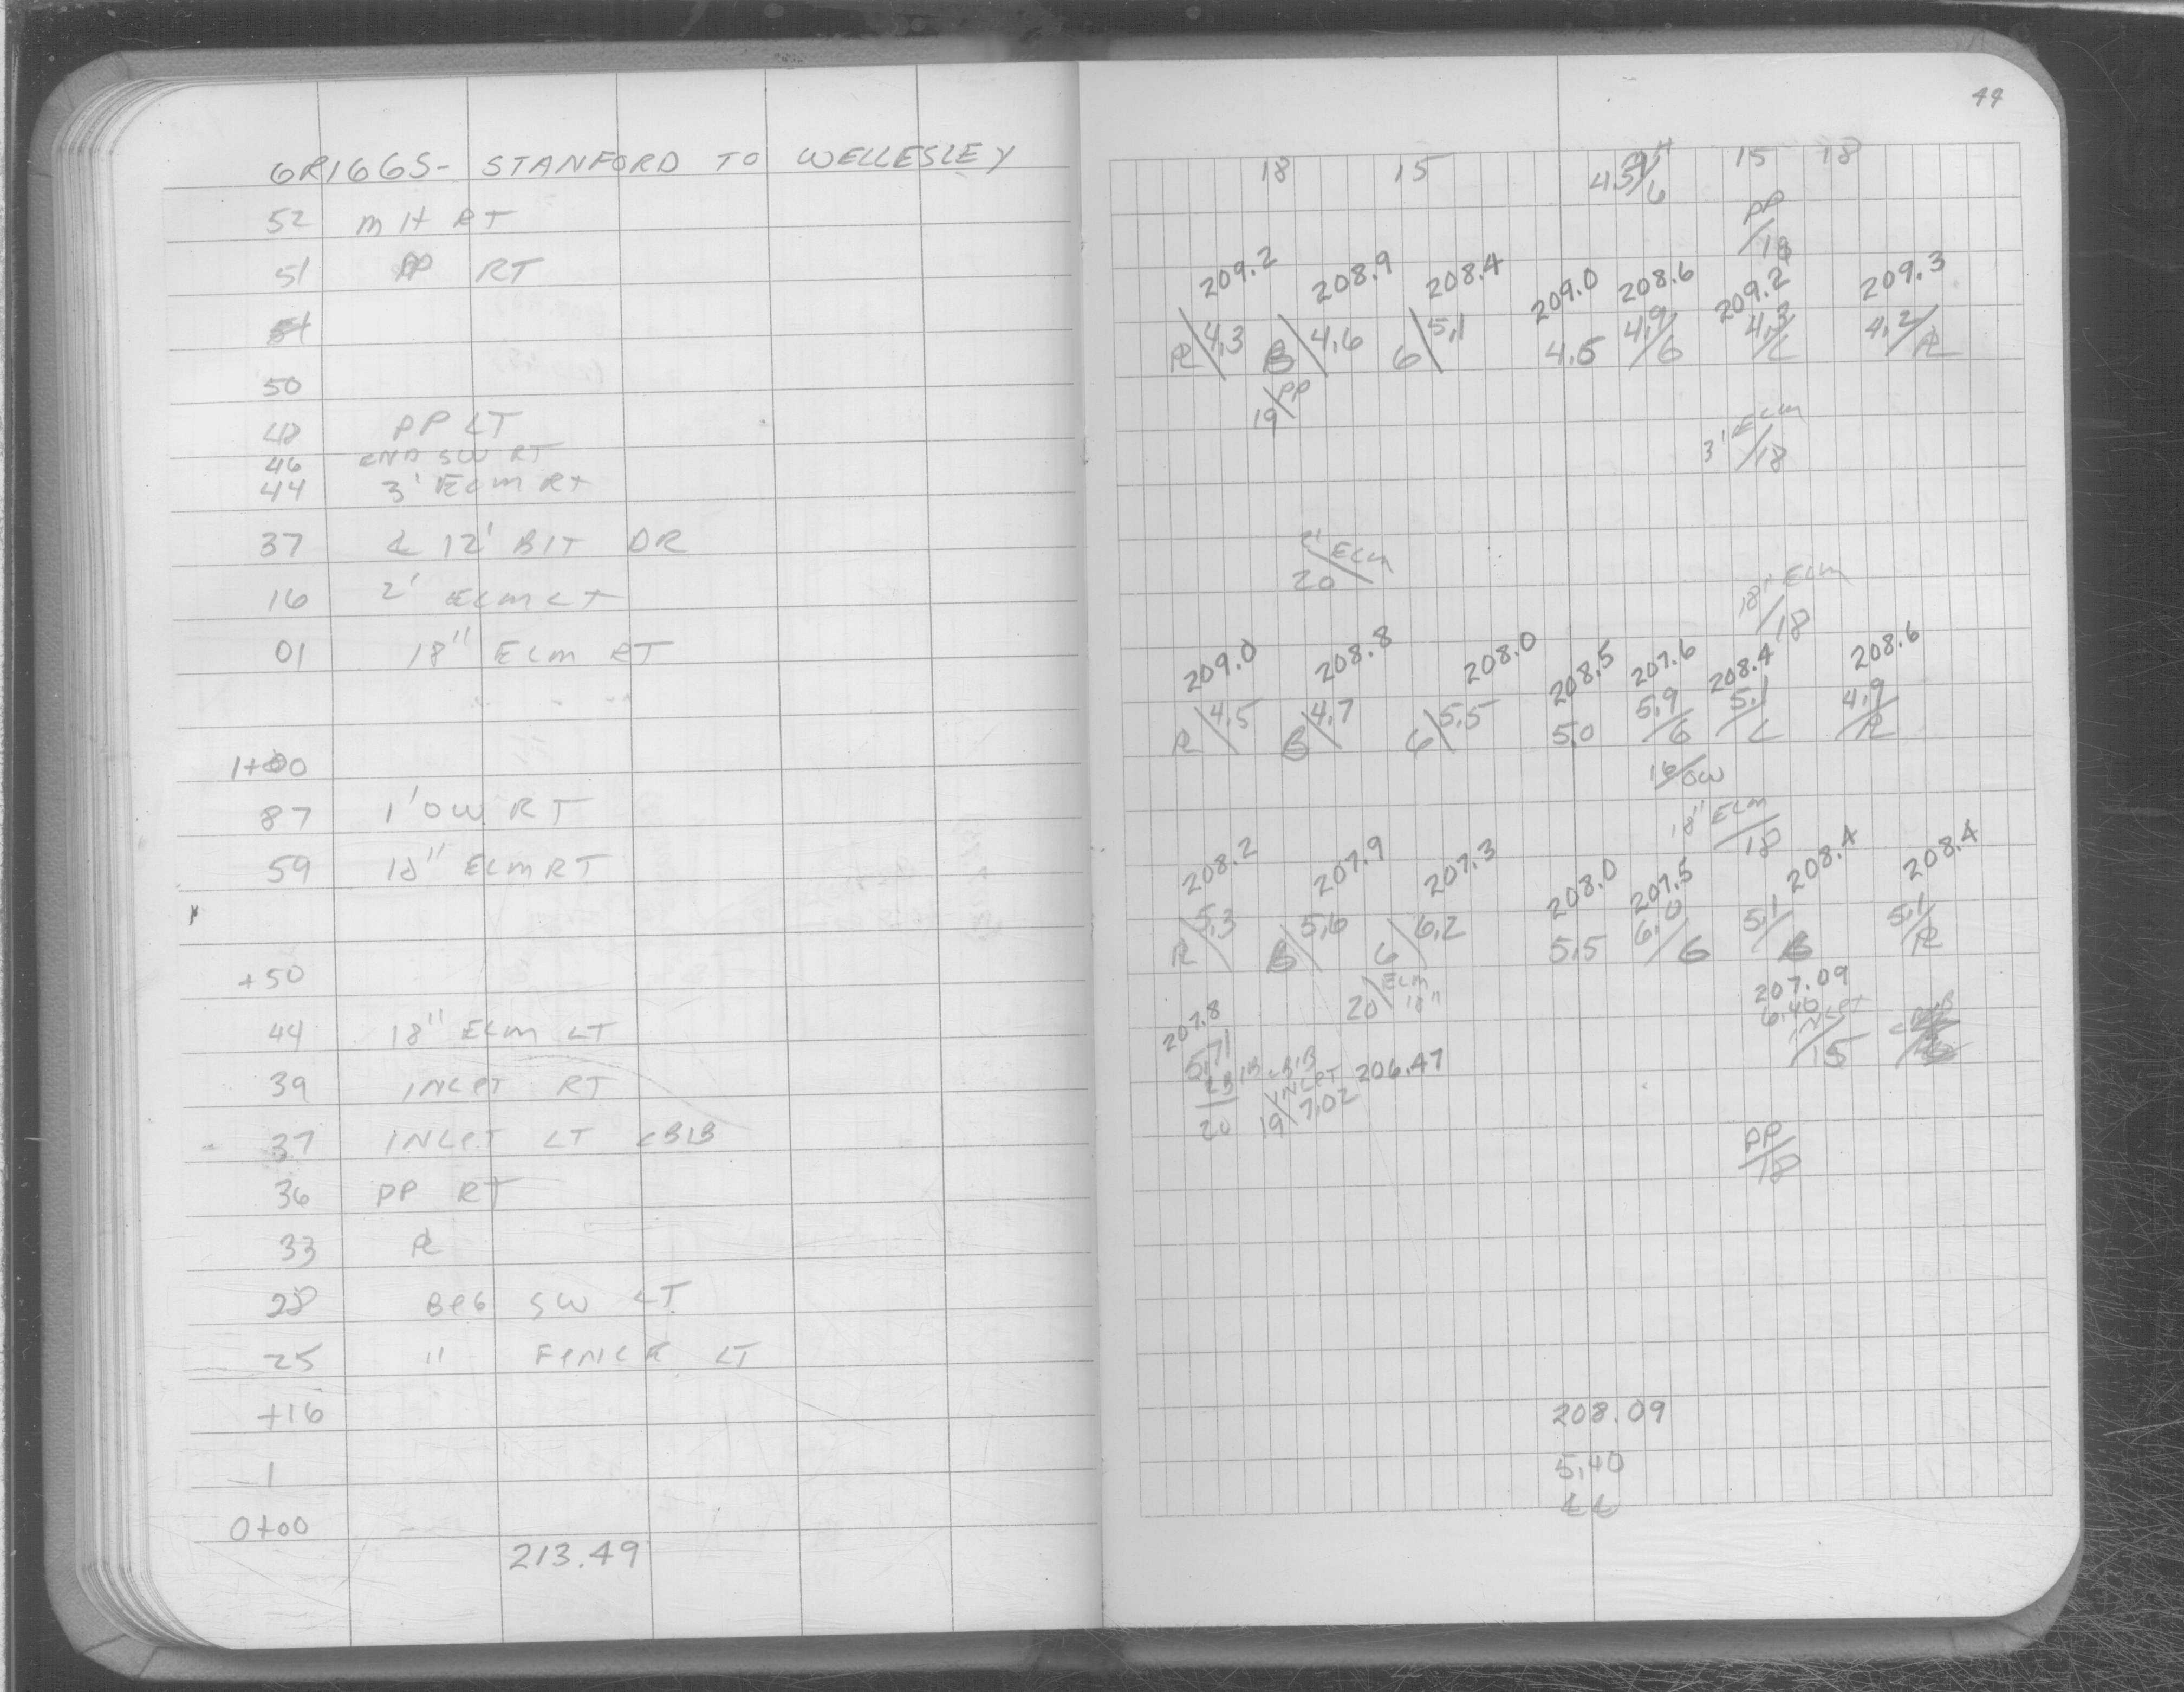 GRIGGS- STANFORD TO WELLESLEY
52 MH RT
51 PP RT
51
50
48 PP LT
46 END SW RT
44 3' ELM RT
37 ℄ 12' BIT DR
16 2' ELM LT
01 18" ELM RT
1+00
87 1' OW RT
59 18" ELM RT
+50
44 18" ELM LT
39 INLET RT
37 INLET LT CBIB
36 PP RT
33 ℞
28 BEG SW LT
25 " FENCE LT
+16
-1
0+00
213.49
44
18 15 4.5/6 15 18
PP/18
209.2 208.9 208.4 209.0 208.6 209.2 209.3
R\4.3 B\4.6 G\5.1 4.5 4.9/G 4.3/L 4.2/R
19\PP
3' ELM/18
2' ELM
20
18" ELM/18
209.0 208.8 208.0 208.5 207.6 208.4 208.6
R\4.5 B\4.7 G\5.5 5.0 5.9/G 5.1/L 4.9/R
16/OW
18" ELM/18
208.2 207.9 207.3 208.0 207.5 208.4 208.4
R\5.3 B\5.6 G\6.2 5.5 6.0/G 5.1/B 5.1/R
20\ELM 18"
207.09
6.40
INLET/15
207.8
5.71
CBIB
20
19\INLET 7.02 206.47
PP/18
208.09
5.40
℄ ℄